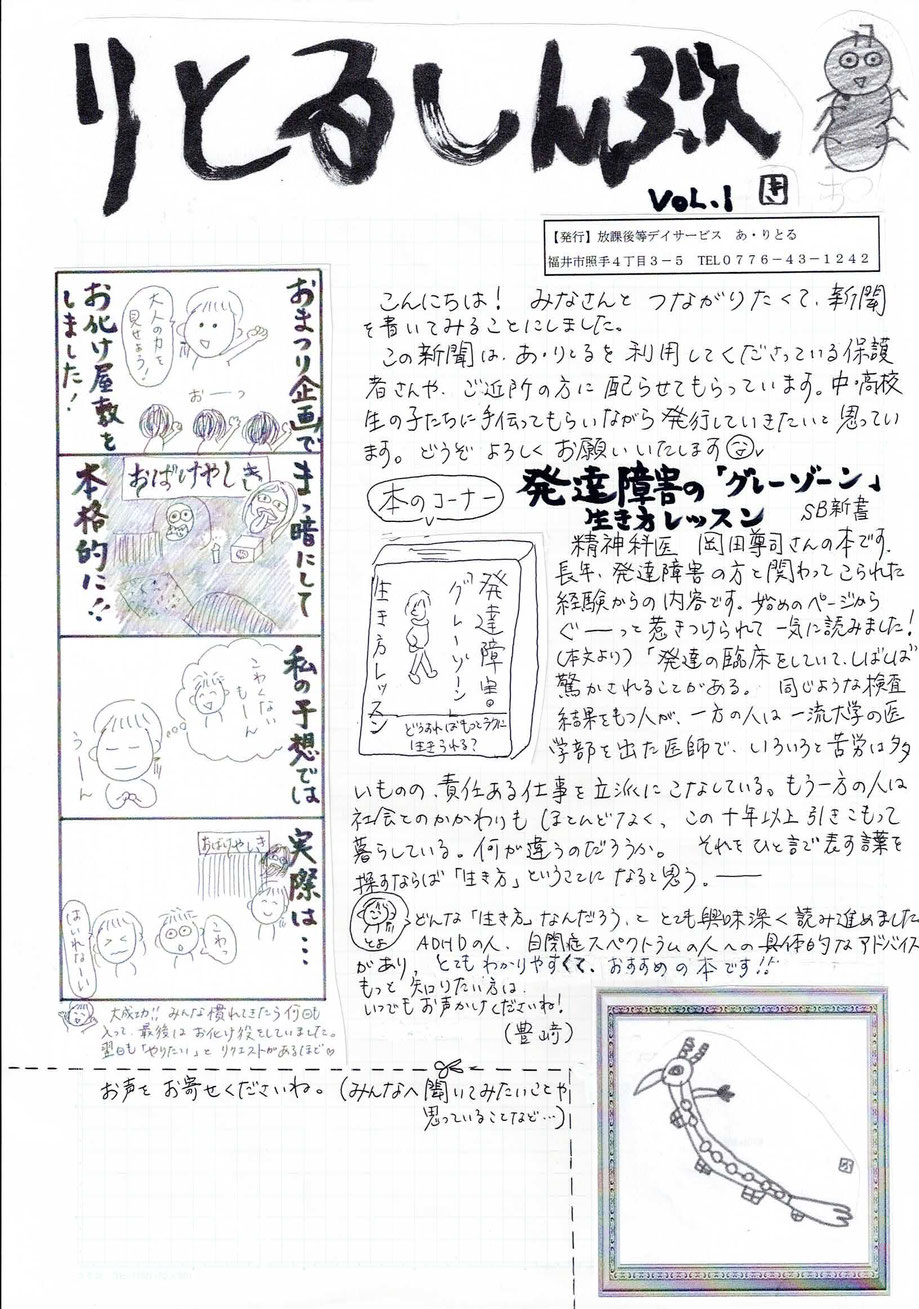 りとるしんぶん
VOL.1
【発行】放課後等デイサービス あ・りとる
福井市照手4丁目3-5 TEL0776-43-1242
こんにちは! みなさんと つながりたくて、新聞
を書いてみることにしました。
この新聞は、あ・りとるを 利用してくださっている保護
者さんや、ご近所の方に 配らせてもらっています。中・高校
生の子たちに手伝ってもらいながら 発行していきたいと思ってい
ます。どうぞ よろしく お願いいたします
おまつり企画で
お化け屋敷を
しました!
大人の力を
見せよう!
おーっ
まっ暗にして
本格的に!!
おばけやしき
私の予想では
こわくないもーん
うーん
実際は…
おばけやしき
こわっ
はいれなーい
大成功!! みんな慣れてきたら何回も
入って、最後は お化け役をしていました。
翌日も「やりたい」と リクエストがあるほど♡
本のコーナー
発達障害の「グレーゾーン」
生き方レッスン SB新書
発達障害の
グレーゾーン
生き方レッスン
どうすればもっとラクに
生きられる?
精神科医 岡田尊司さんの本です。
長年、発達障害の方と関わってこられた
経験からの内容です。始めのページから
ぐーっと惹きつけられて 一気に読みました!
(本文より)「発達の臨床をしていて、しばしば
驚かされることがある。 同じような検査
結果をもつ人が、一方の人は 一流大学の医
学部を出た医師で、いろいろと苦労は多
いものの、責任ある仕事を立派に こなしている。もう一方の人は
社会とのかかわりも ほとんどなく、この十年以上引きこもって
暮らしている。何が違うのだろうか。 それをひと言で表す言葉を
探すならば「生き方」ということに なると思う。――
とよ
どんな「生き方」なんだろう、と とても興味深く読み進めました
ADHDの人、自閉症スペクトラムの人への具体的なアドバイス
があり、とても わかりやすくて、おすすめの本です!!
もっと 知りたい方は、
いつでもお声かけくださいね!
(豊﨑)
お声を お寄せくださいね。(みんなへ聞いてみたいことや
思っていることなど…)